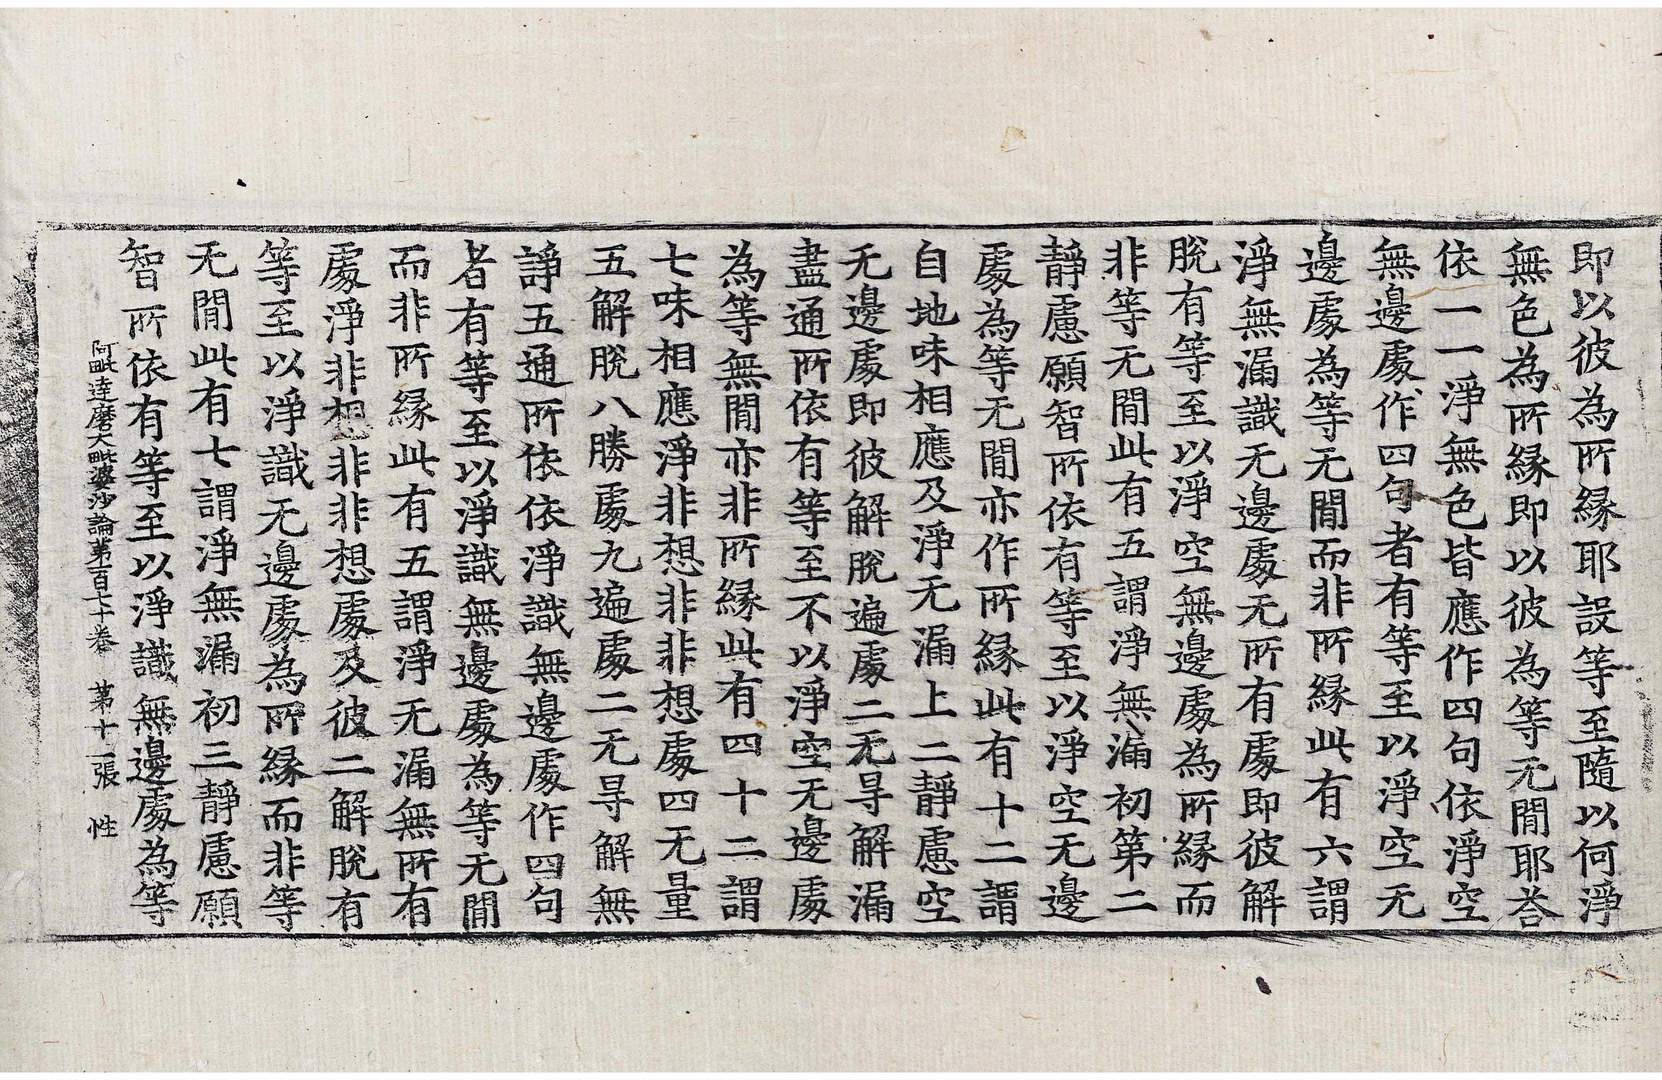 即以彼為所縁耶設等至隨以何淨
無色為所縁即以彼為等无間耶荅
依一一淨無色皆應作四句依淨空
無邊處作四句者有等至以淨空无
邊處為等无間而非所縁此有六謂
淨無漏識无邊處无所有處即彼解
脫有等至以淨空無邊處為所縁而
非等无間此有五謂淨無漏初第二
靜慮願智所依有等至以淨空无邊
處為等无間亦作所縁此有十二謂
自地味相應及淨无漏上二靜慮空
无邊處即彼解脫遍處二无㝵解漏
盡通所依有等至不以淨空无邊處
為等無間亦非所縁此有四十二謂
七味相應淨非想非非想處四无量
五解脫八勝處九遍處二无㝵解無
諍五通所依依淨識無邊處作四句
者有等至以淨識無邊處為等无間
而非所縁此有五謂淨无漏無所有
處淨非想非非想處及彼二解脫有
等至以淨識无邊處為所縁而非等
无間此有七謂淨無漏初三靜慮願
智所依有等至以淨識無邊處為等
阿毗達磨大毗婆沙論第百七十卷　第十一張　性